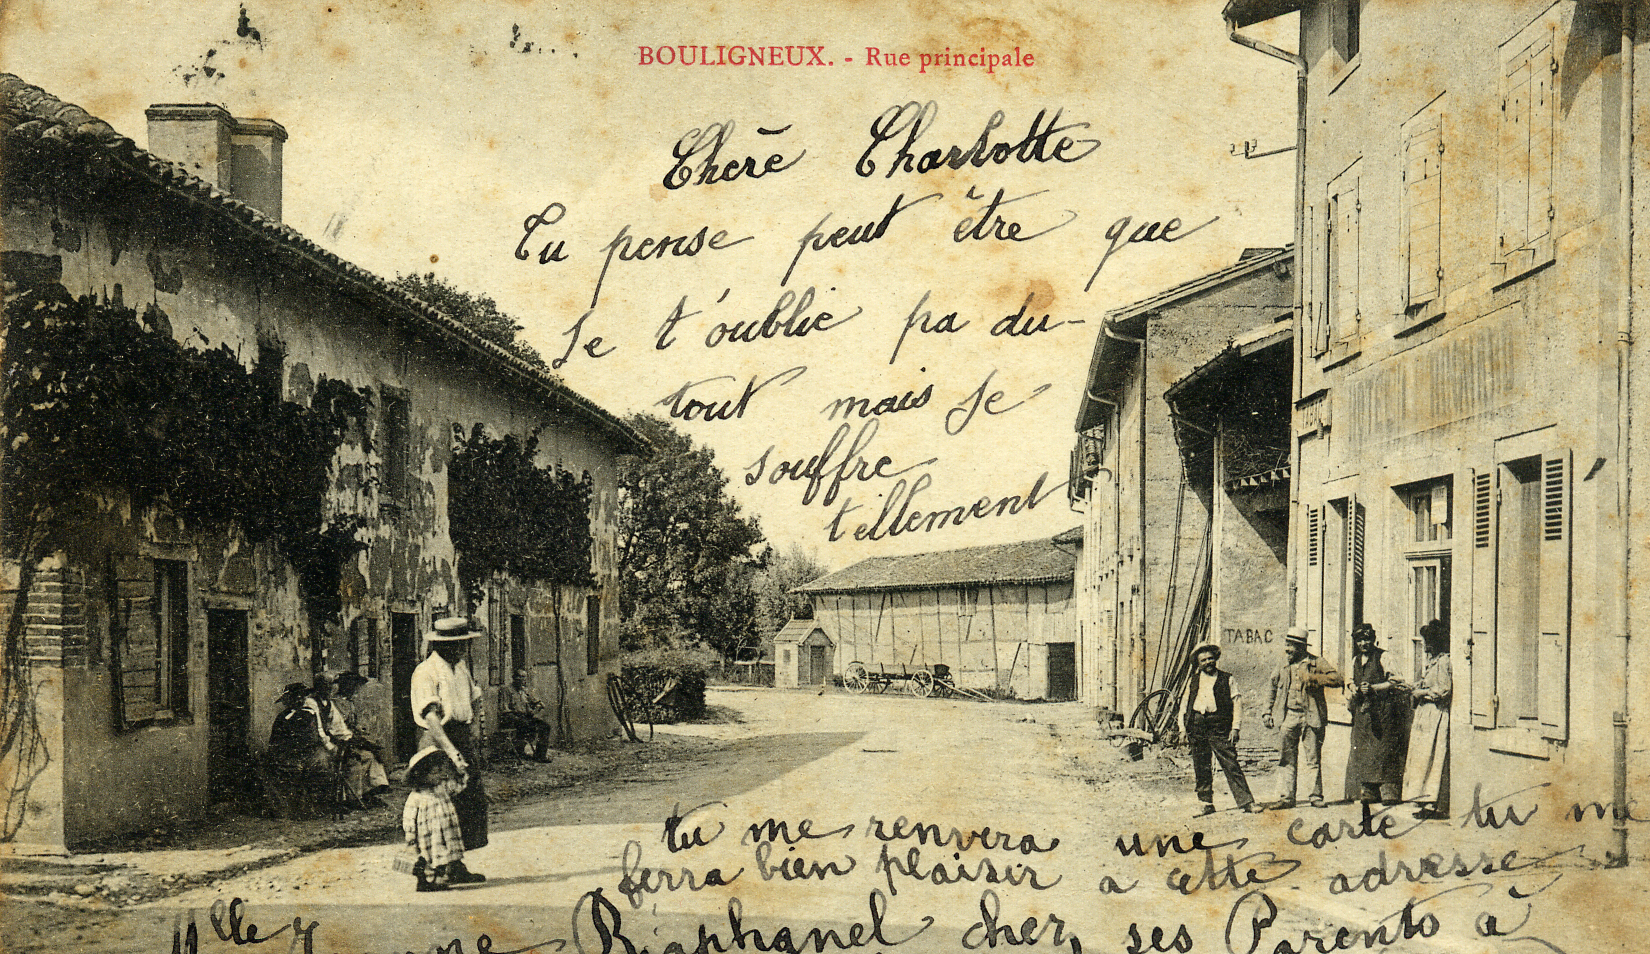 BOULIGNEUX. - Rue principale
Chère Charlotte
Tu pense peut être que
Je t'oublie pa du-
tout mais Je
souffre
tellement
TABAC
HOTEL
TABAC
tu me renvera une carte tu me
ferra bien plaisir a cette adresse
Mlle chez ses Parents à